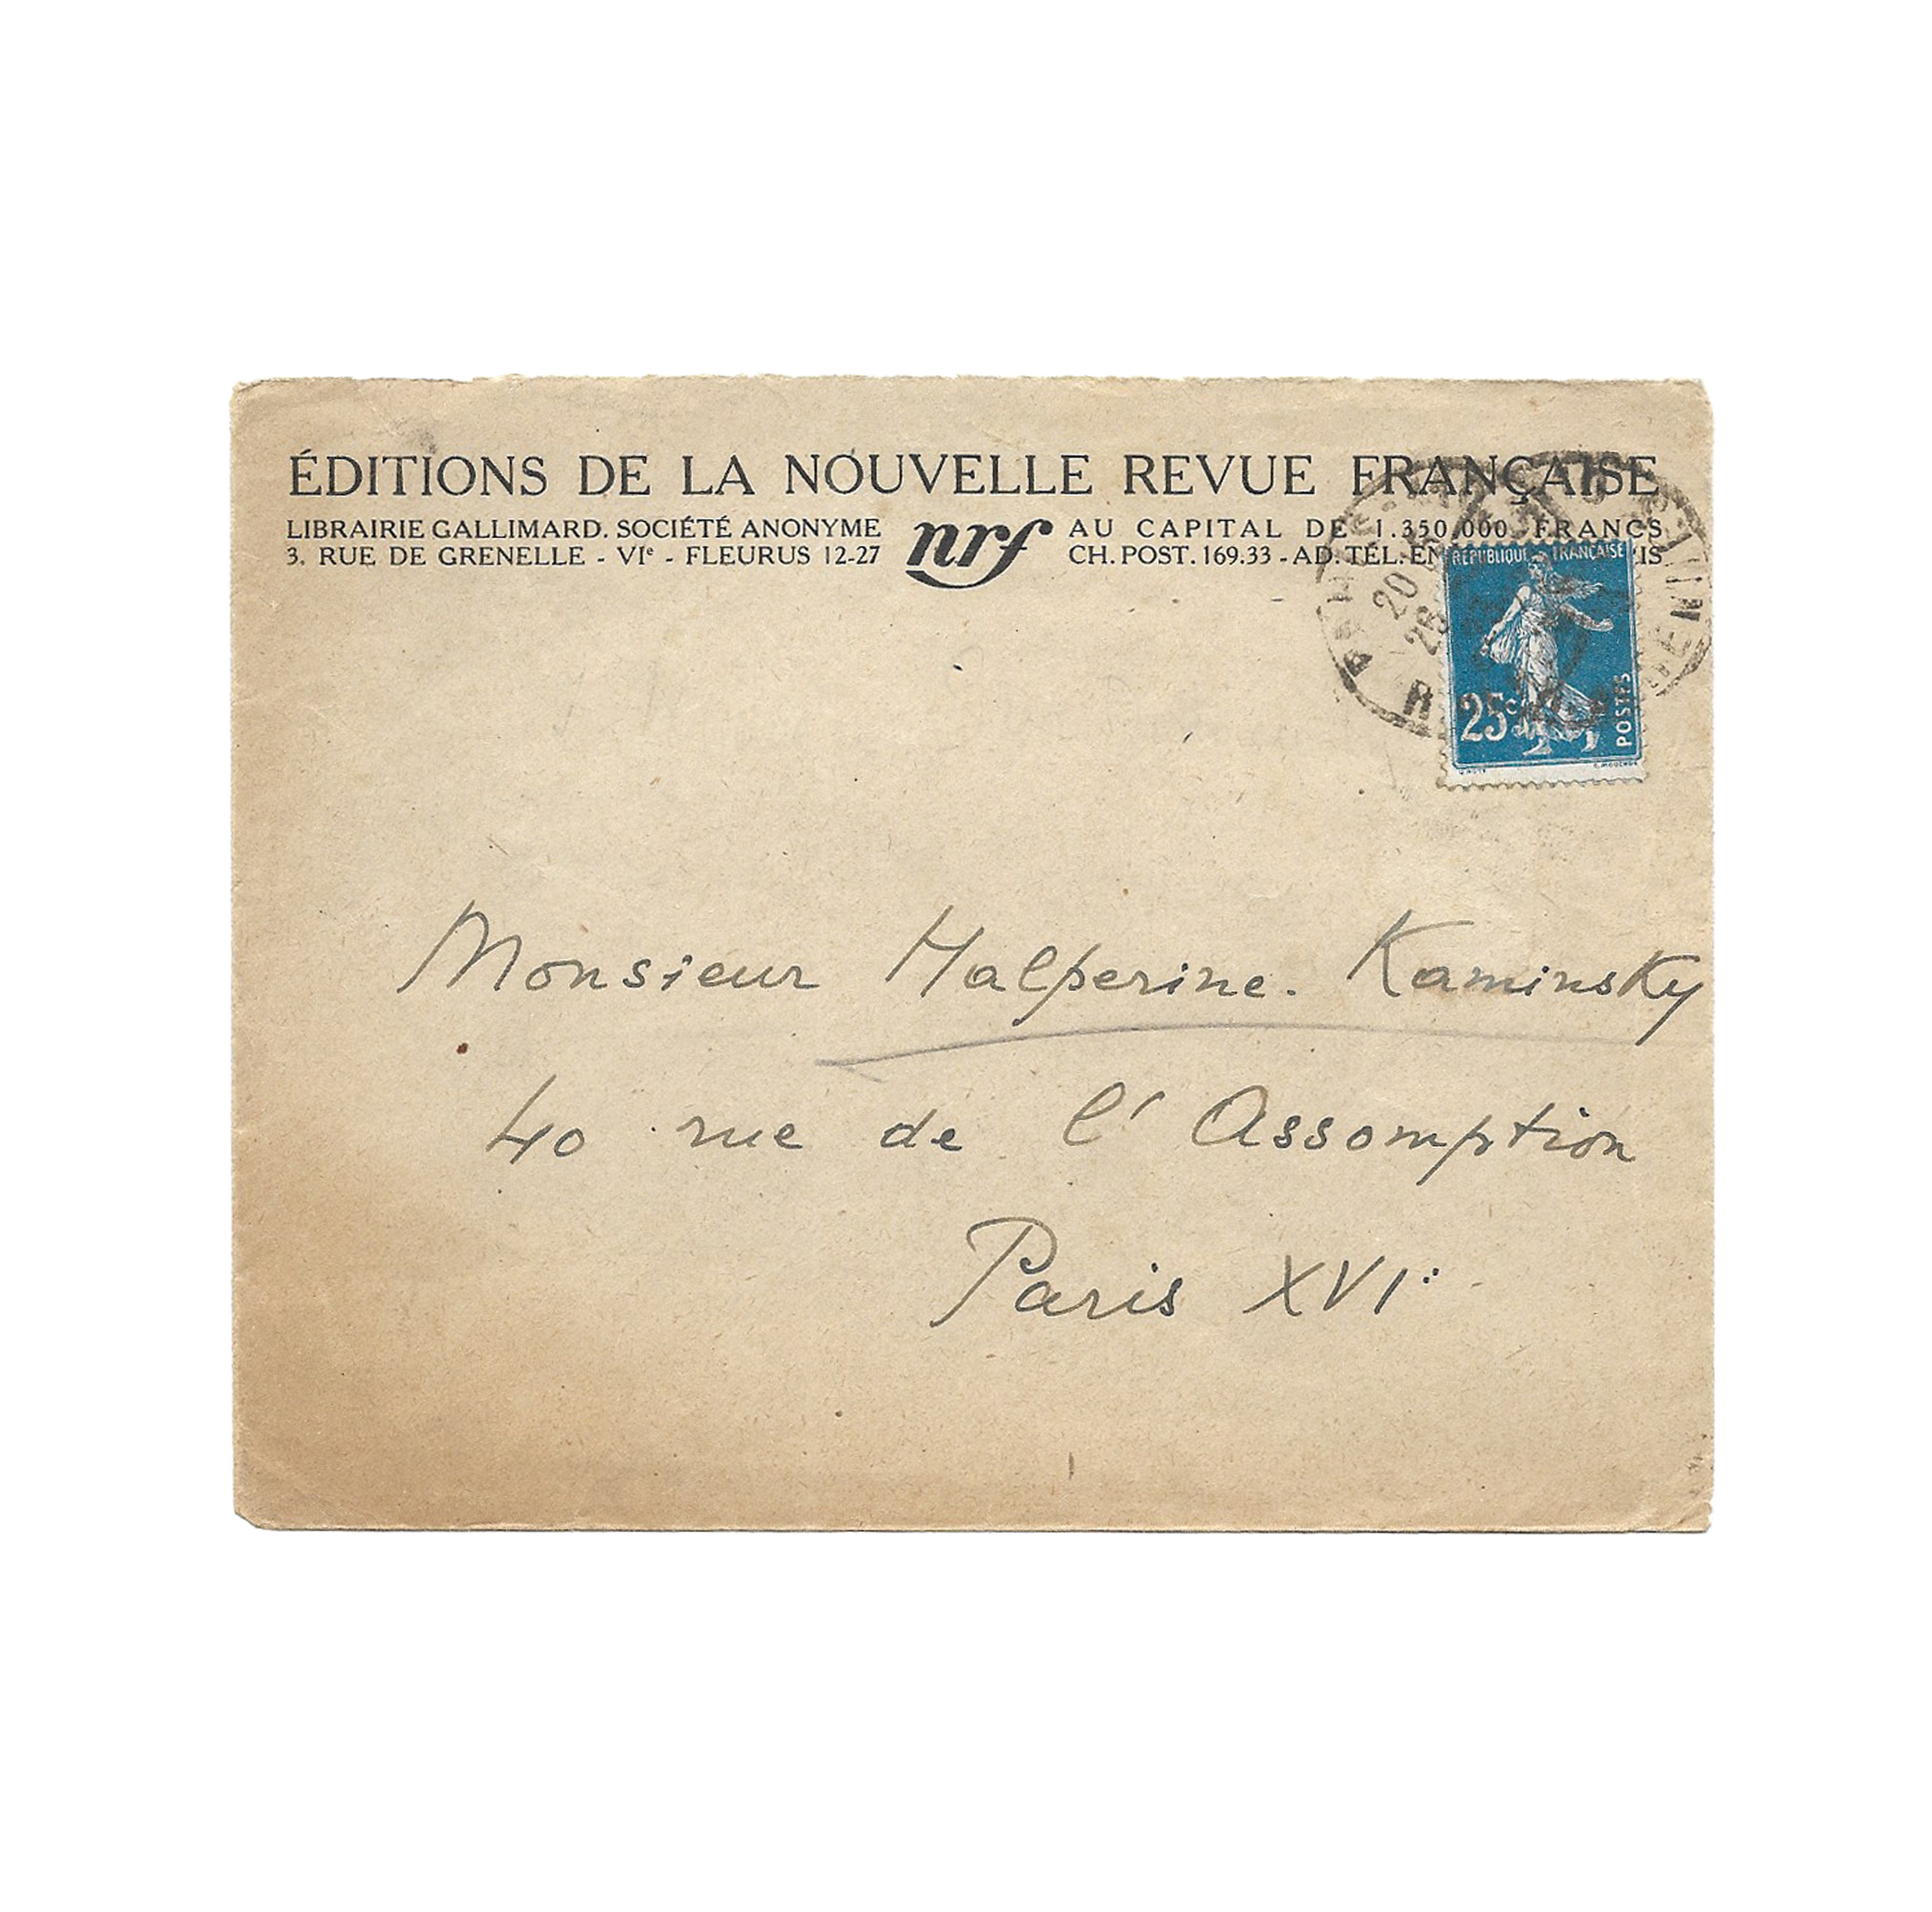 ÉDITIONS DE LA NOUVELLE REVUE FRANÇAISE
LIBRAIRIE GALLIMARD. SOCIÉTÉ ANONYME
3. RUE DE GRENELLE - VIe - FLEURUS 12-27
nrf
AU CAPITAL DE 1.350.000 FRANCS
CH. POST. 169.33 - AD. TÉL.
RÉPUBLIQUE FRANÇAISE
25c
POSTES
Monsieur Halpérine. Kaminsky
40 rue de l'Assomption
Paris XVIe